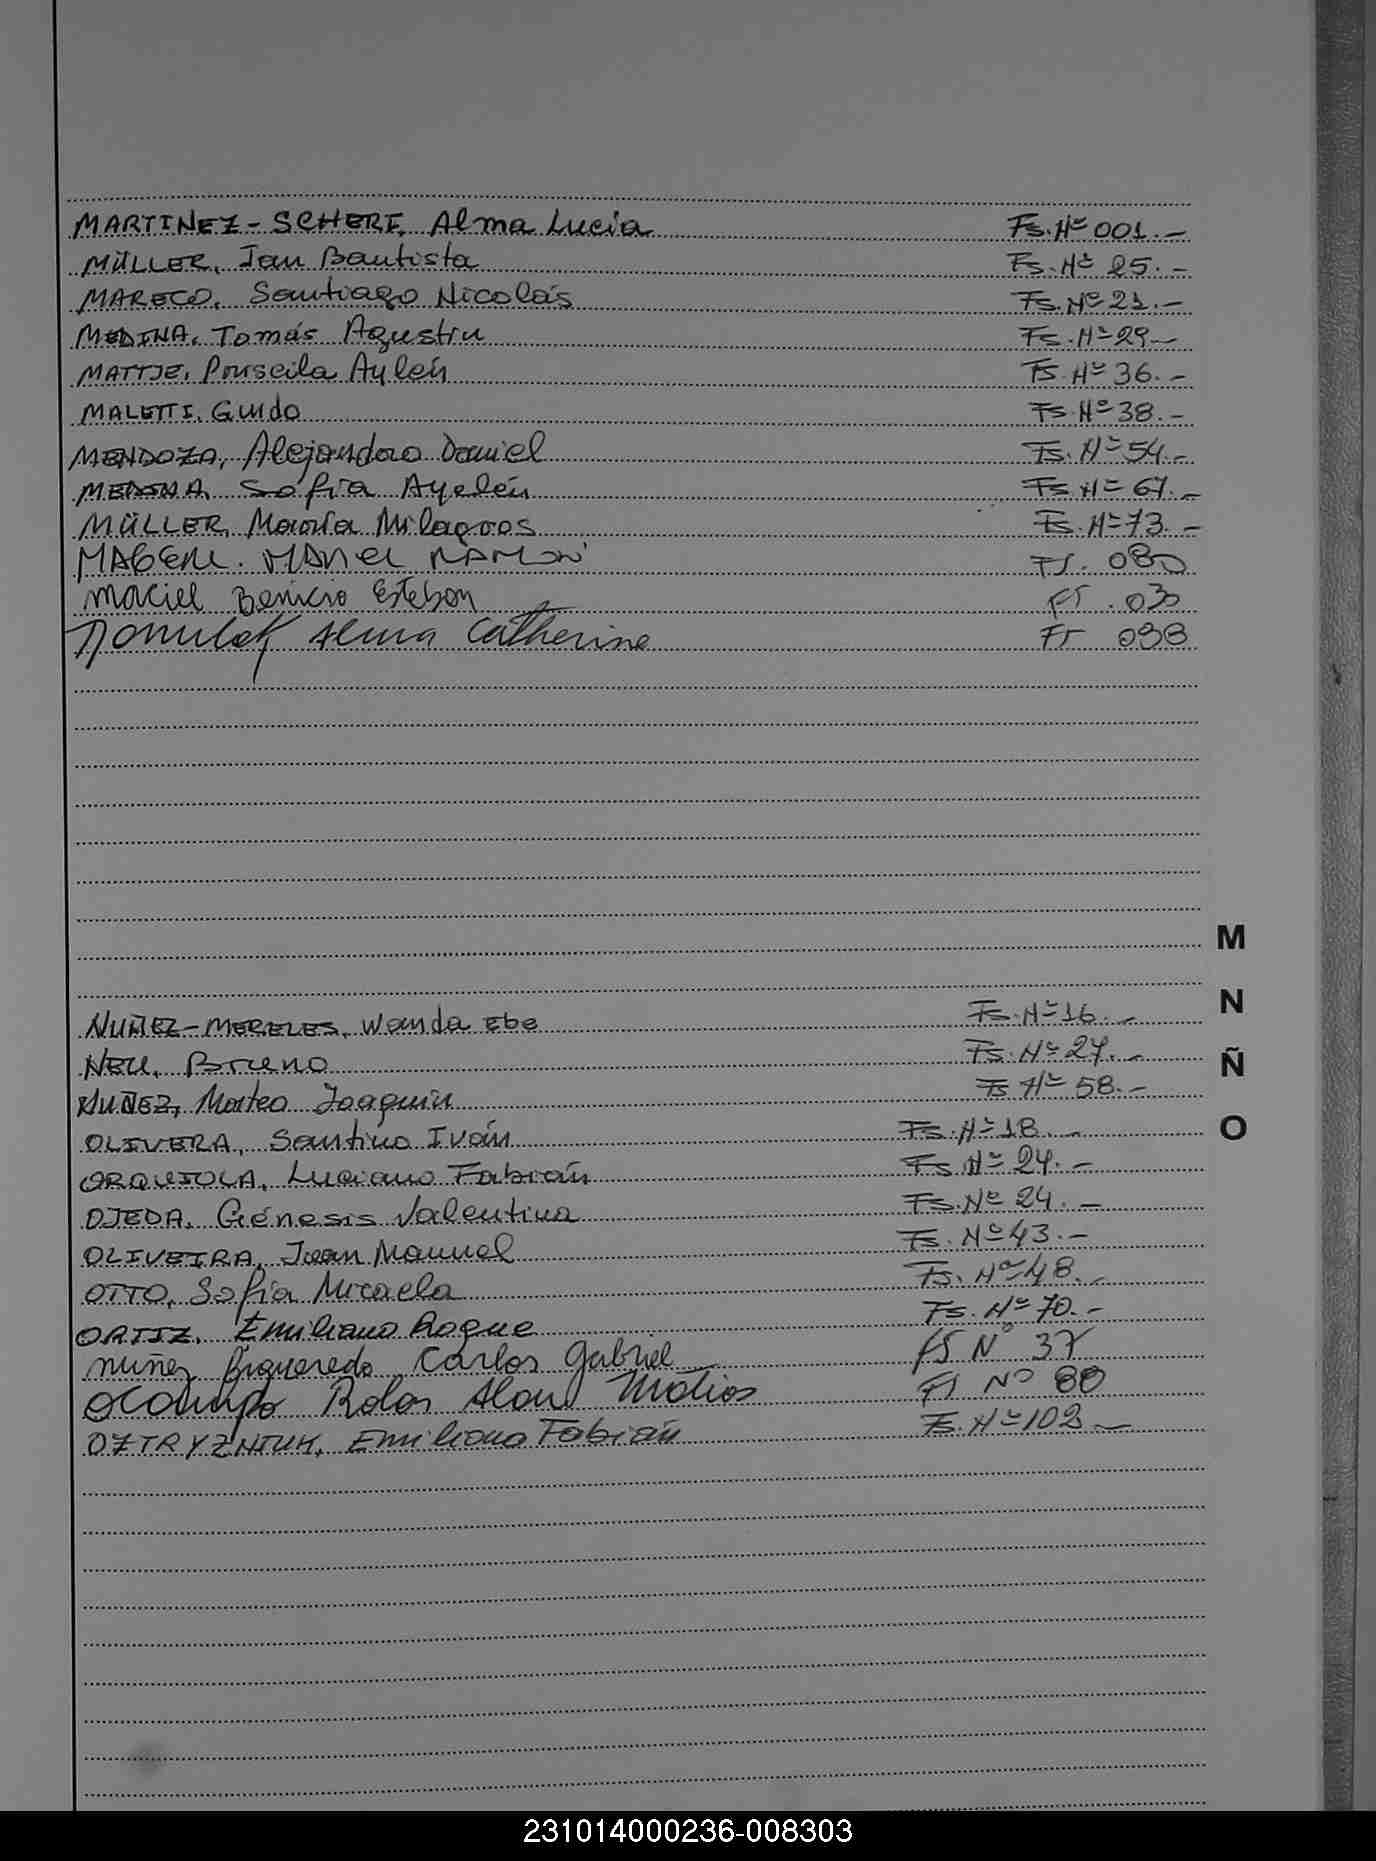 MARTINEZ-SCHERF, Alma Lucia Fs. Nº 001.-
MÜLLER, Ian Bautista Fs. Nº 25.-
MARECO, Santiago Nicolás Fs. Nº 21.-
MEDINA, Tomás Agustin Fs. Nº 29-
MATTJE, Priscila Aylén Fs. Nº 36.-
MALETTI, Guido Fs. Nº 38.-
MENDOZA, Alejandro Daniel Fs. Nº 54.-
MEDINA, Sofia Ayelén Fs. Nº 67.-
MÜLLER, María Milagros Fs. Nº 73.-
RAMON Fs. 080
Maciel Benicio Esteban Fs. 030
Alma Catherine Fs 098
M
N
Ñ
O
NUÑEZ-MERELES, Wanda Ebe Fs. Nº 16.-
NEU, Bruno Fs. Nº 27.-
NUÑEZ, Mateo Joaquin Fs Nº 58.-
OLIVERA, Santino Iván Fs. Nº 18.-
ORQUIOLA, Luciano Fabián Fs. Nº 24.-
OJEDA, Génesis Valentina Fs. Nº 24.-
OLIVEIRA, Juan Manuel Fs. Nº 43.-
OTTO, Sofia Micaela Fs. Nº 48.-
ORTIZ, Emiliano Roque Fs. Nº 70.-
nuñez figueredo Carlos Gabriel fs Nº 37
Ocampo Rolas Alan Matias Fs Nº 88
Emiliano Fabián Fs. Nº 102-
231014000236-008303